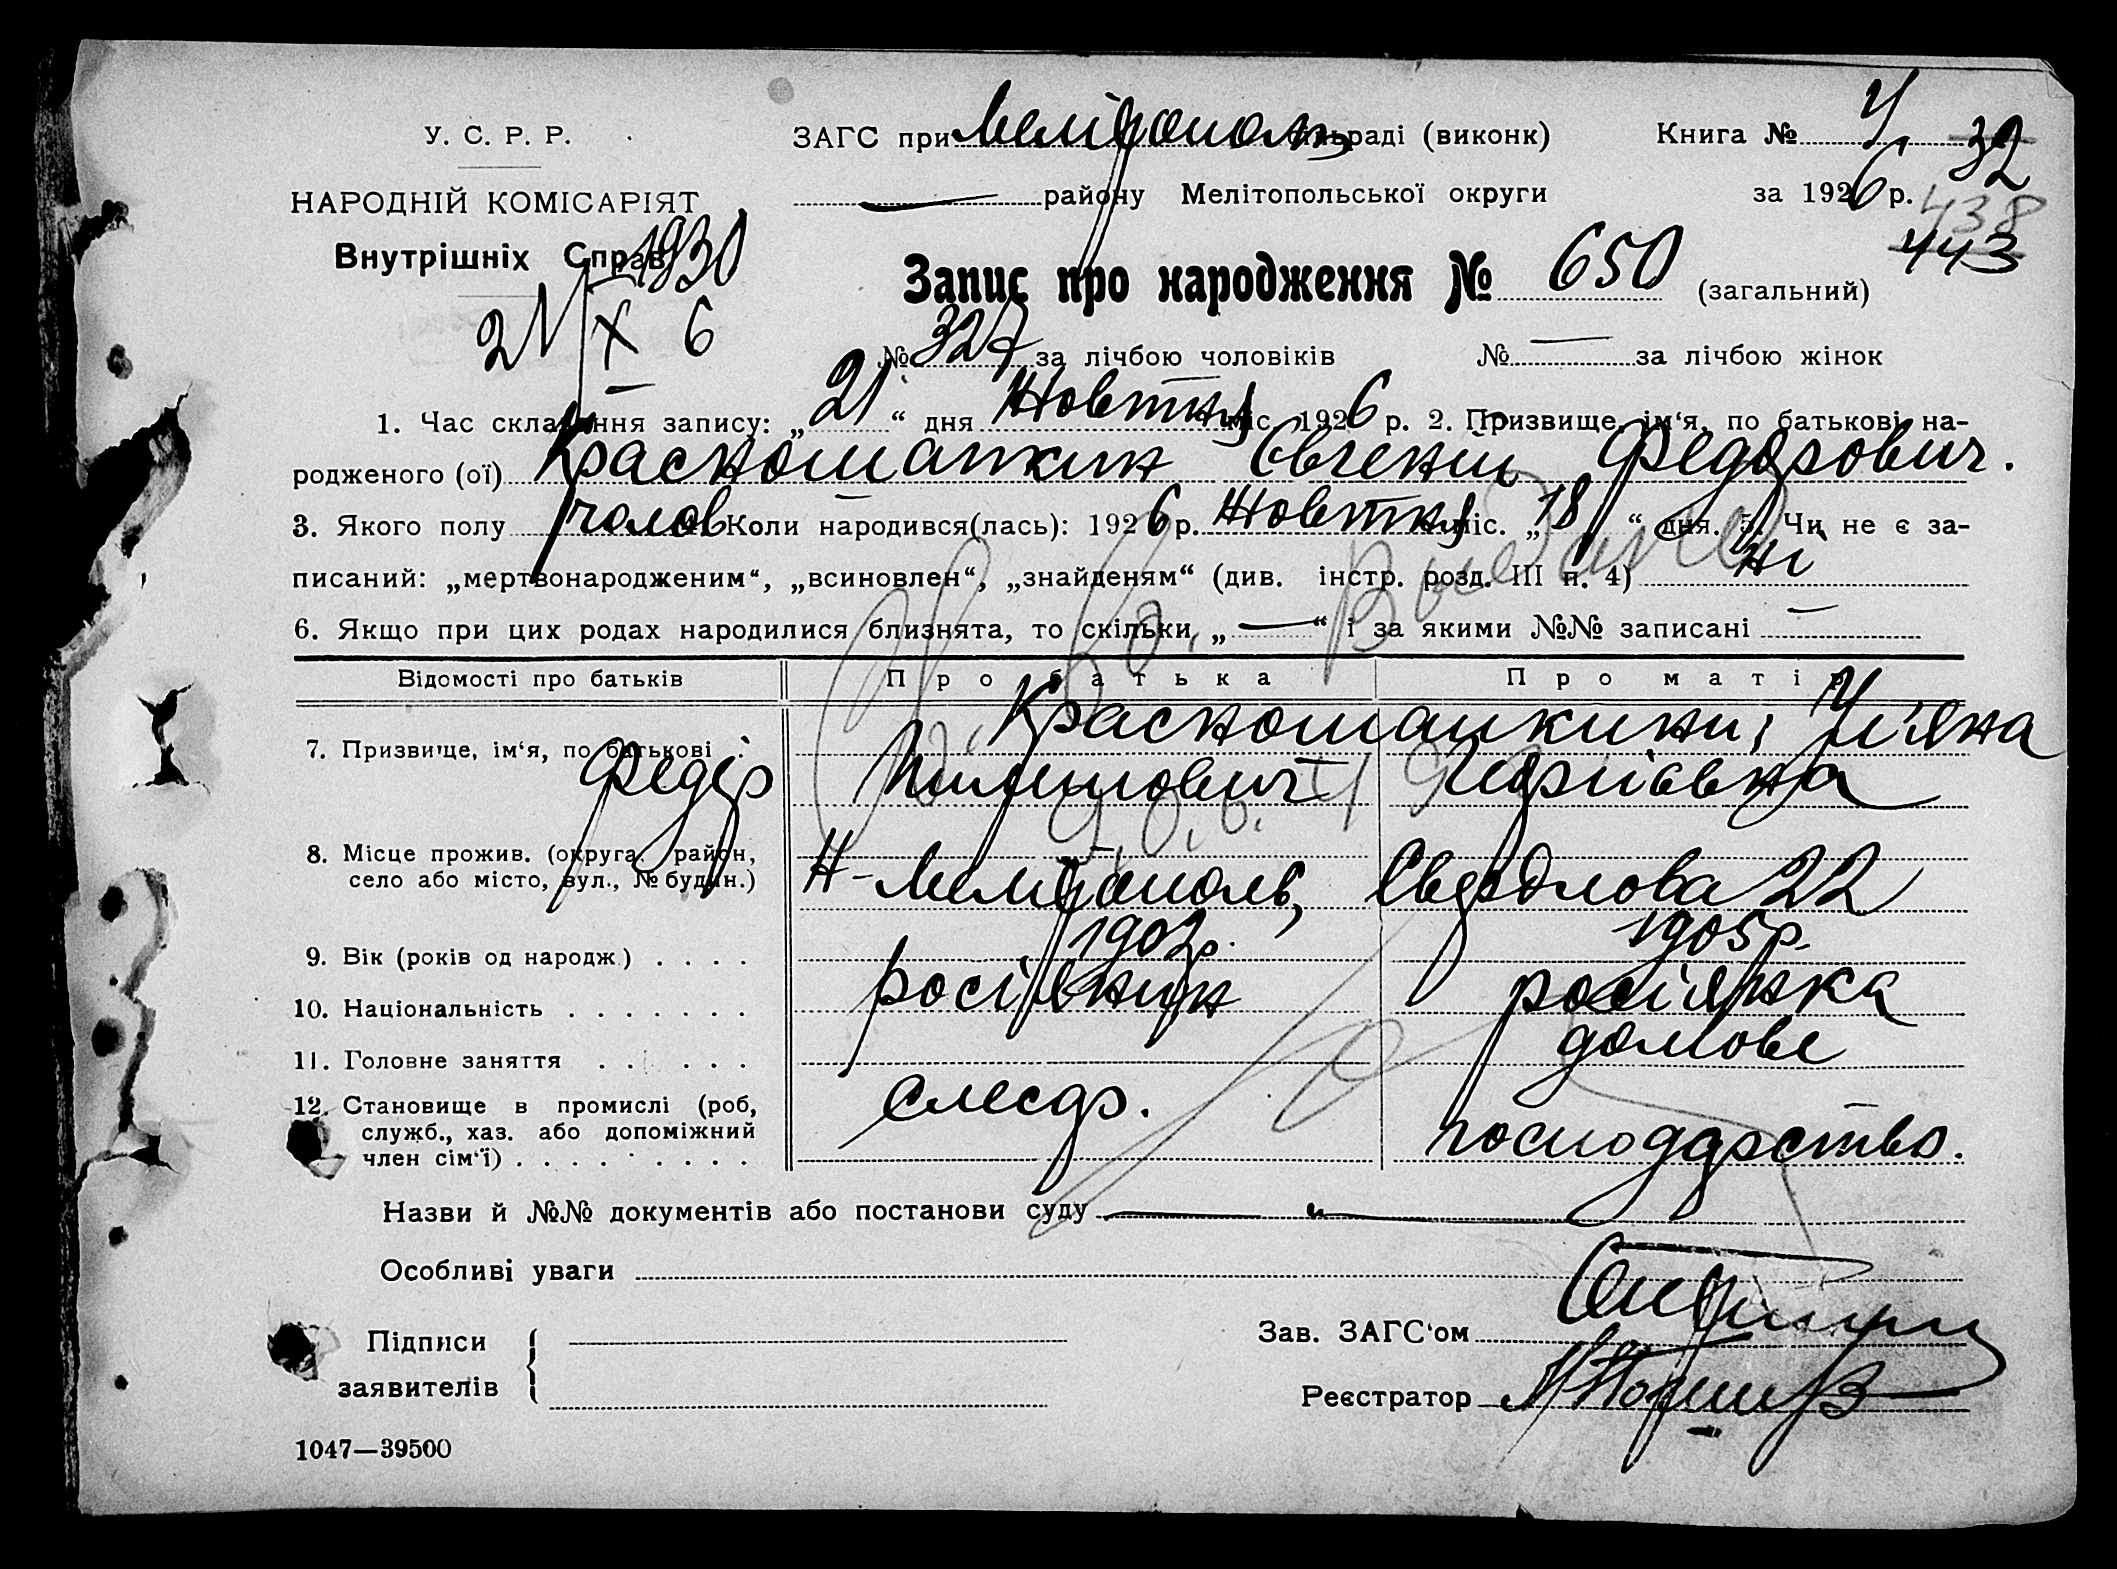 У. С. Р. Р.
НАРОДНІЙ КОМІСАРІЯТ
Внутрішніх Справ
1930
21 X 6
ЗАГС при Мелітополь міськраді (виконк) Книга № 4
32
— району Мелітопольської округи за 1926 р.
438
443
Запис про народження № 650 (загальний)
№ 327 за лічбою чоловіків № — за лічбою жінок
1. Час складання запису: „21“ дня Жовтня міс. 1926 р. 2. Призвище, ім‘я, по батькові на-
родженого (ої) Красношапкин Євгений Федорович.
3. Якого полу чолов 4. Коли народився(лась): 1926 р. Жовтня міс. „18“ дня. 5. Чи не є за-
писаний: „мертвонародженим“, „всиновлен“, „знайденям“ (див. інстр. розд. III п. 4) ні
6. Якщо при цих родах народилися близнята, то скільки „—“ і за якими №№ записані —
Відомості про батьків Про батька Про матір
7. Призвище, ім‘я, по батькові . Красношапкини; Ул‘яна
Федір Пилипович Юріївна
8. Місце прожив. (округа, район,
село або місто, вул., № будин.) Н-Мелітополь, Свердлова 22
9. Вік (років од народж.) . . . . 1902р. 1905р.
10. Національність . . . . . . . росіянин росіянка
11. Головне заняття . . . . . . домове
12. Становище в промислі (роб, слесар. господарство.
служб., хаз. або допоміжний
член сім‘ї) . . . . . . . . .
Назви й №№ документів або постанови суду — „ —
Особливі уваги
Підписи
заявителів
Зав. ЗАГС‘ом
Реєстратор
1047—39500